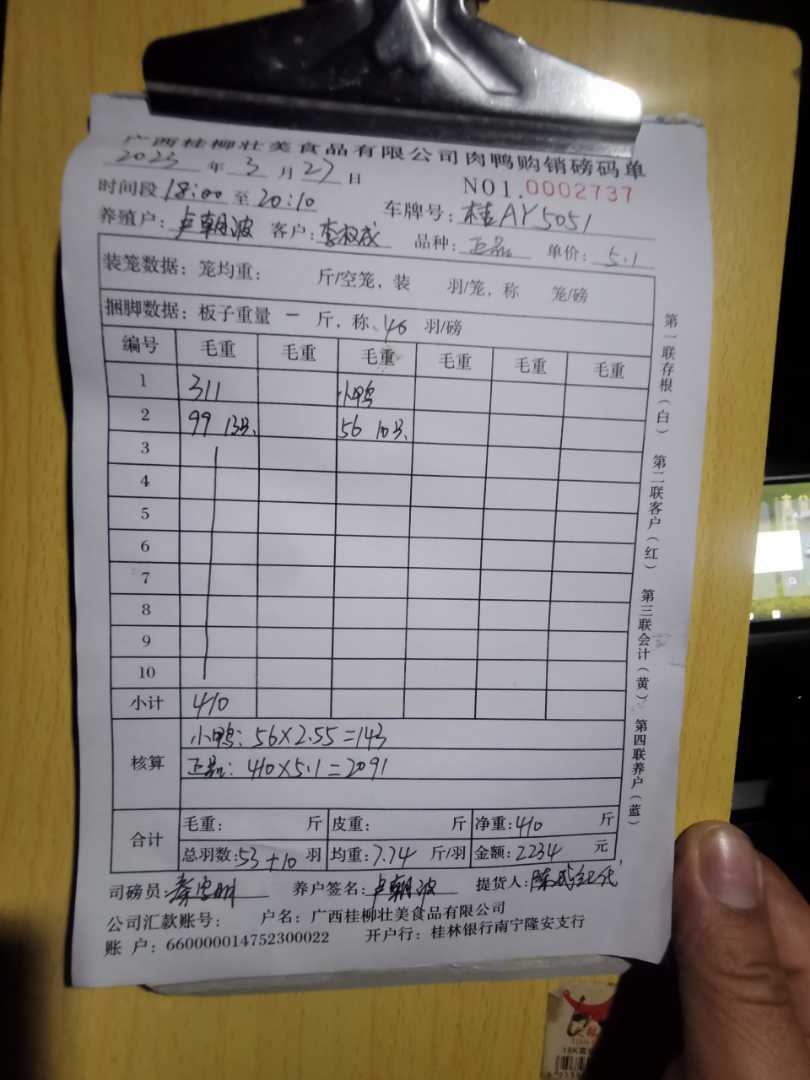 广西桂柳壮美食品有限公司肉鸭购销磅码单
2023 年 3 月 27 日 NO1.0002737
时间段 18:00 至 20:10 车牌号: 桂AY5051
养殖户: 卢朝波 客户: 李权成 品种: 正品 单价: 5.1
装笼数据: 笼均重: 斤/空笼, 装 羽/笼, 称 笼/磅
捆脚数据: 板子重量 一 斤, 称 40 羽/磅
编号 毛重 毛重 毛重 毛重 毛重 毛重
1 311 小鸭
2 99 13只 56 10只
3
4
5
6
7
8
9
10
小计 410
核算 小鸭: 56×2.55=143
正品: 410×5.1=2091
合计 毛重: 斤 皮重: 斤 净重: 410 斤
总羽数: 53+10 羽 均重: 7.74 斤/羽 金额: 2234 元
司磅员: 养户签名: 卢朝波 提货人:
公司汇款账号: 户名: 广西桂柳壮美食品有限公司
账 户: 660000014752300022 开户行: 桂林银行南宁隆安支行
第一联存根(白) 第二联客户(红) 第三联会计(黄) 第四联养户(蓝)